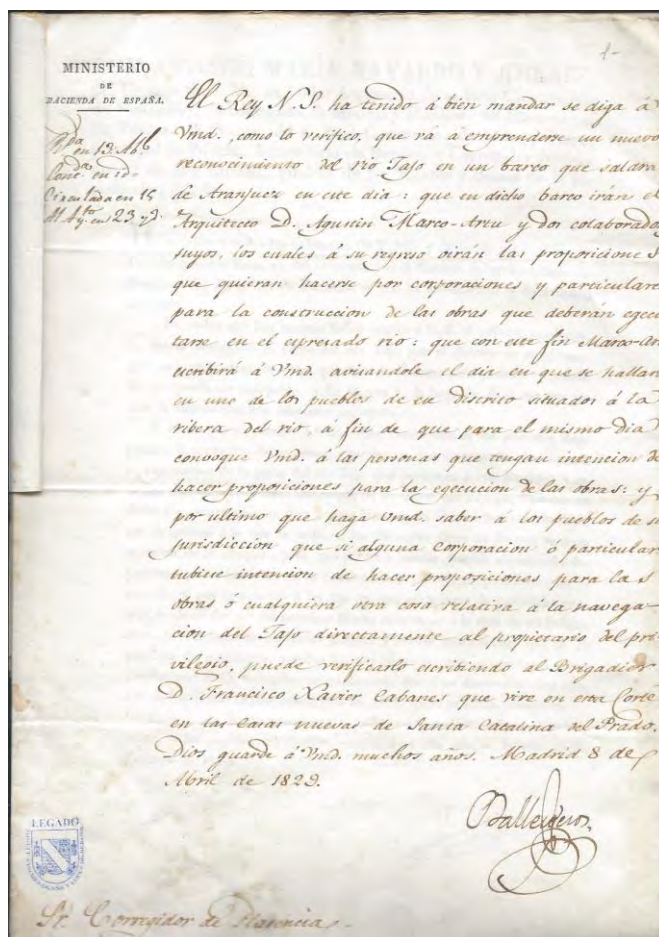 1-
MINISTERIO
DE
HACIENDA DE ESPAÑA.
en 13. Ab.l
Cont. en id.
Circulada en 15
Al Ay.to en 23
El Rey N. S. ha tenido á bien mandar se diga á
Vmd., como lo verifico, que vá á emprenderse un nuevo
reconocimiento del rio Tajo en un barco que saldrá
de Aranjuez en este dia: que en dicho barco irán el
Arquitecto D. Agustin Marco-Artu y dos colaborado
suyos, los cuales á su regreso oirán las proposiciones
que quieran hacerse por corporaciones y particulare
para la construccion de las obras que deberán egecu
tarse en el espresado rio: que con este fin Marco-Ar
escribirá á Vmd. avisandole el dia en que se hallar
en uno de los pueblos de su distrito situados á la
ribera del rio, á fin de que para el mismo dia
convoque Vmd. á las personas que tengan intencion de
hacer proposiciones para la egecucion de las obras: y
por ultimo que haga Vmd. saber á los pueblos de su
jurisdiccion que si alguna corporacion ó particular
tubiese intencion de hacer proposiciones para las
obras ó cualquiera otra cosa relativa á la navega-
cion del Tajo directamente al propietario del pri-
vilegio, puede verificarlo escribiendo al Brigadier
D. Francisco Xavier Cabanes que vive en esta Corte
en las Casas nuevas de Santa Catalina del Prado.
Dios guarde á Vmd. muchos años. Madrid 8 de
Abril de 1829.
Ballesteros
LEGADO
Sr. Corregidor de Plasencia.